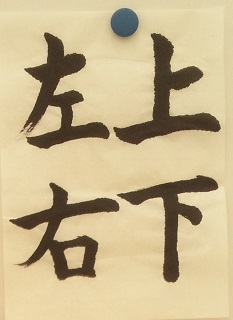 上下
左右